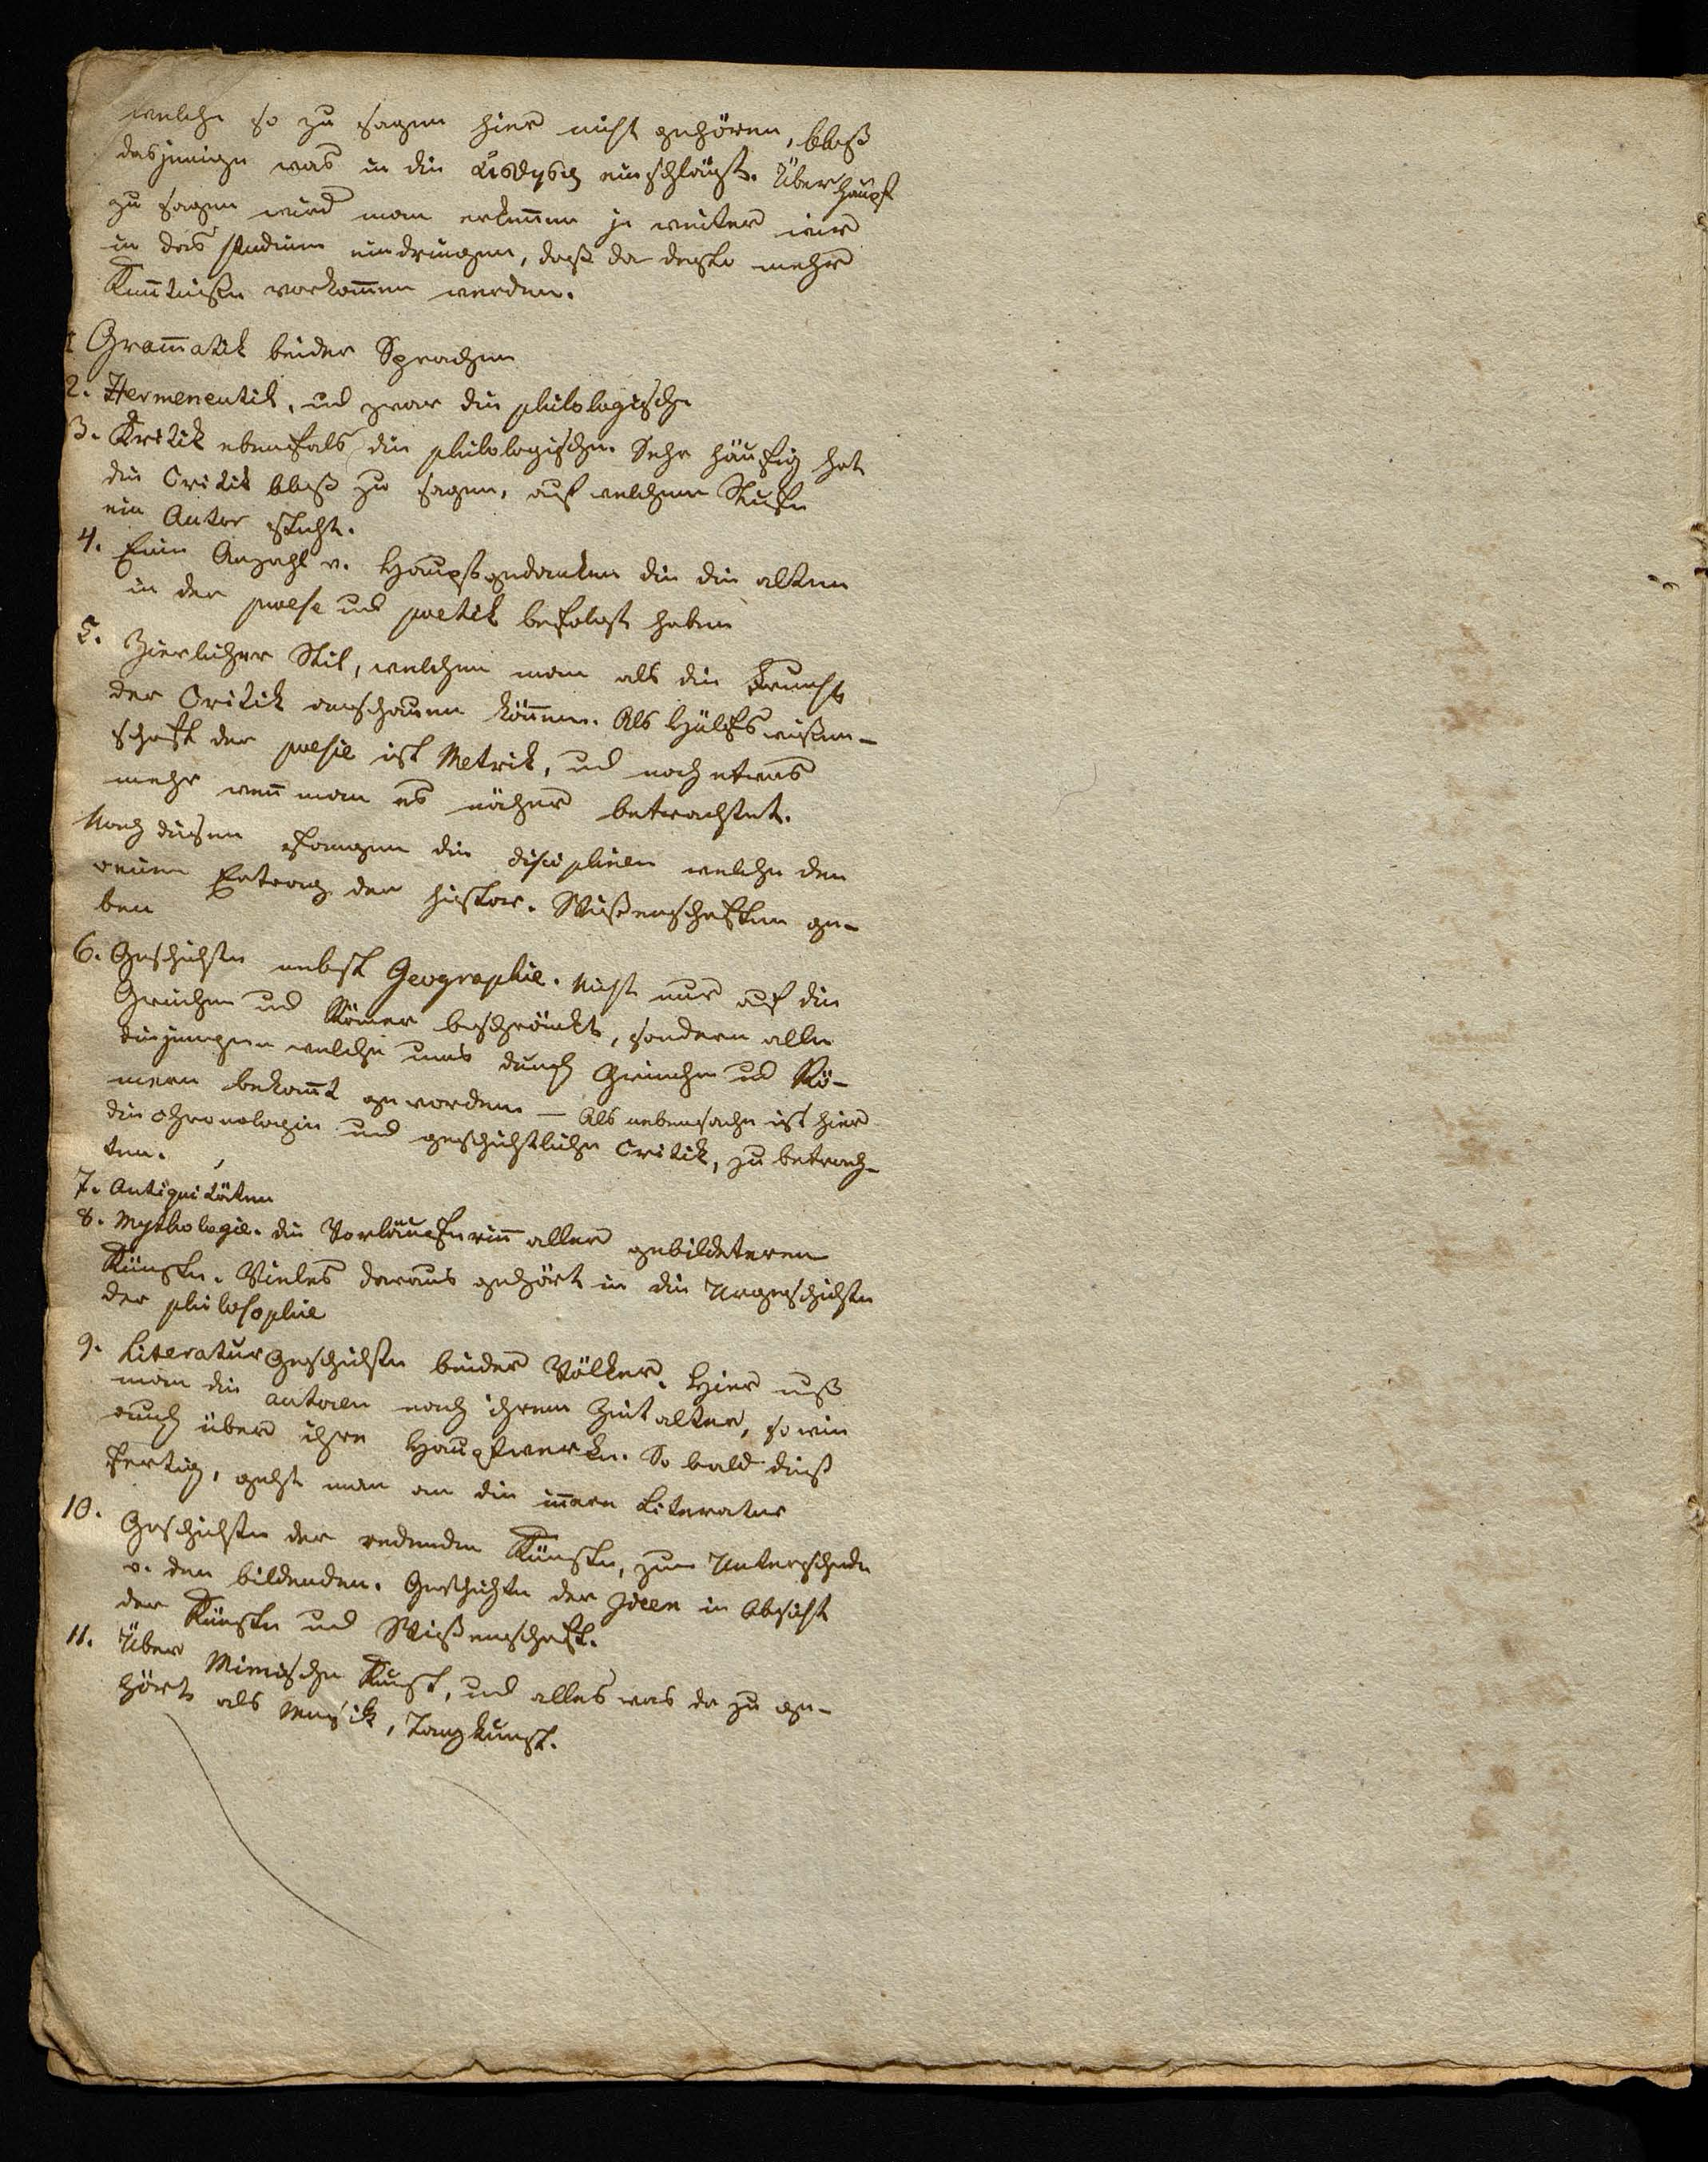 welche so zu sagen hier nicht gehören, bloß
dasjenige was in die einschlägt. Überhaupt
zu sagen wird man erkeñen je weiter wir
in das studium eindringen, daß da desto mehr
Keñtniße vorkom̃en werden.
1 Gram̃atik beider Sprachen
2. Hermeneutik, und zwar die philologische
3. Kritik ebenfals die philologische. Sehr häufig hat
die Critik bloß zu sagen, auf welcher Stufe
ein Autor steht.
4. Eine Anzahl v. Hauptgedanken die die alten
in der poesie und poetik befolgt haben
5. Zierlicher Stil, welchen man als die Frucht
der Critik anschauen köñen. Als Hülfswißen-
schaft der poesie ist Metrik, und noch etwas
mehr weñ man es näher betrachtet.
Nach diesen folgen die disciplinen welche den
reinen Ertrag der histor. Wißenschaften ge-
ben
6. Geschichte nebst Geographie. Nicht nur auf die
Griechen und Römer beschränkt, sondern alle
diejenigen welche uns durch Griechen und Rö-
mern bekañt geworden — Als nebensache ist hier
die chronologie und geschichtliche Critik, zu betrach-
ten.
7. Antiquitäten
8. Mythologie. die Vorläuferiñ aller gebildeteren
Künste. Vieles daraus gehört in die Urgeschichte
der philosophie
9. Literatur Geschichte beider Völker. Hier uß
man die autoren nach ihrem Zeitalter, so wie
auch über ihre Hauptwerke. So bald dieß
fertig, geht man an die iñere Literatur
10. Geschichte der redenden Künste, zum Unterschiede
v. den bildenden. Geschichte der Ideen in Absicht
der Künste und Wißenschaft.
11. Über Mimische Kunst, und alles was da zu ge-
hört als Musik, Tanzkunst.